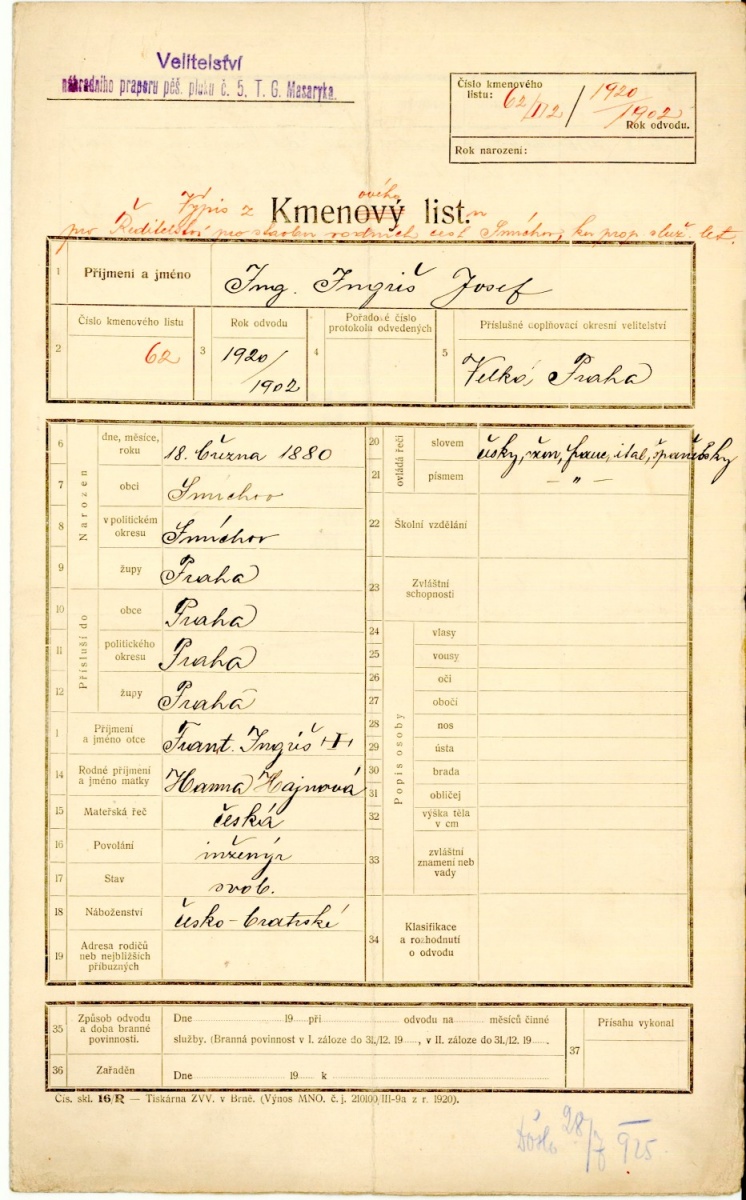 Velitelství
náhradního praporu pěš. pluku č. 5. T. G. Masaryka.
Číslo kmenového
listu: 62/II2 / 1920/1902
Rok odvodu.
Rok narození:
Výpis z Kmenového list.u
pro Ředitelství pro stavbu vodních cest Smíchov, ku prop. služ. let.
1 Příjmení a jméno Ing. Ingriš Josef
2 Číslo kmenového listu 62
3 Rok odvodu 1920/1902
4 Pořadové číslo protokolu odvedených
5 Příslušné doplňovací okresní velitelství Velká Praha
Narozen
6 dne, měsíce, roku 18. března 1880
7 obci Smíchov
8 v politickém okresu Smíchov
9 župy Praha
Přísluší do
10 obce Praha
11 politického okresu Praha
12 župy Praha
1 Příjmení a jméno otce Frant. Ingriš
14 Rodné příjmení a jméno matky Hanna Hajnová
15 Mateřská řeč česká
16 Povolání inženýr
17 Stav svob.
18 Náboženství česko-bratrské
19 Adresa rodičů neb nejbližších příbuzných
ovládá řeči
20 slovem česky, něm, franc, ital, španělsky
21 písmem – „ –
22 Školní vzdělání
23 Zvláštní schopnosti
Popis osoby
24 vlasy
25 vousy
26 oči
27 obočí
28 nos
29 ústa
30 brada
31 obličej
32 výška těla v cm
33 zvláštní znamení neb vady
34 Klasifikace a rozhodnutí o odvodu
35 Způsob odvodu a doba branné povinnosti.
Dne 19 při odvodu na měsíců činné
služby. (Branná povinnost v I. záloze do 31./12. 19 , v II. záloze do 31./12. 19 .
36 Zařaděn Dne 19 k
37 Přísahu vykonal
Čís. skl. 16/R — Tiskárna ZVV. v Brně. (Výnos MNO. č. j. 210100/III-9a z r. 1920).
Došlo 28/7 925